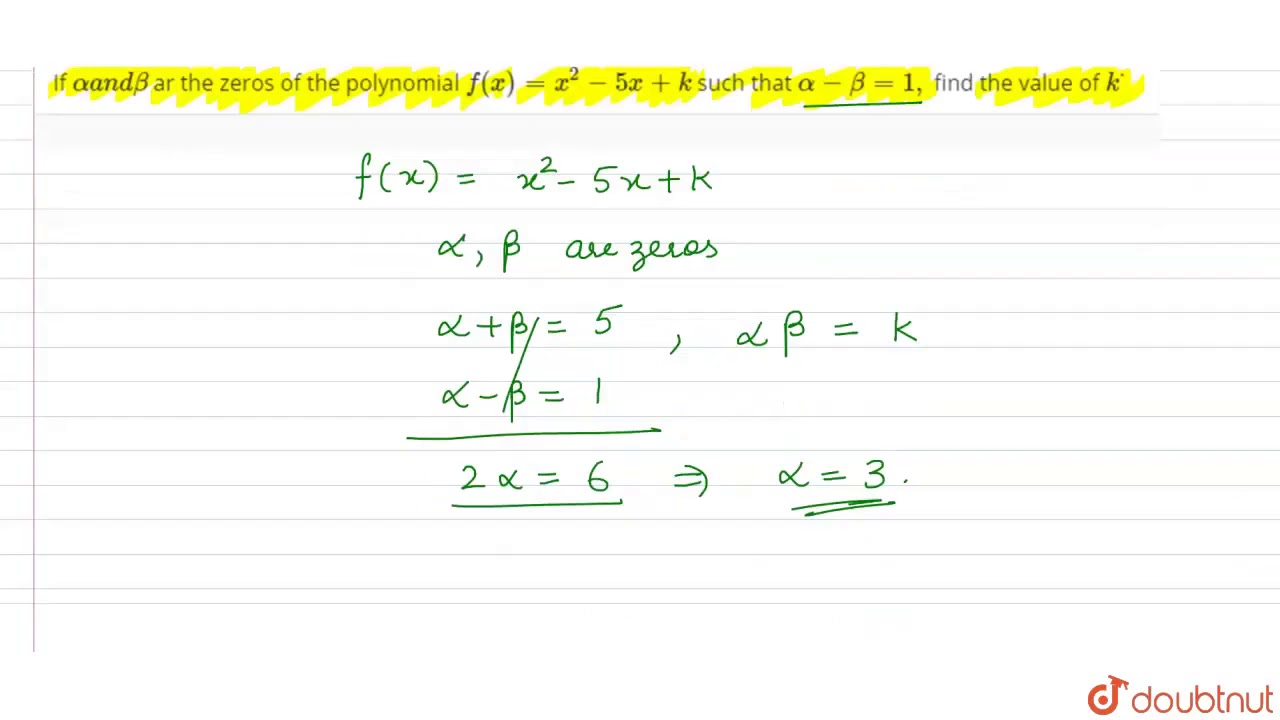 If αandβ ar the zeros of the polynomial f(x) = x² − 5x + k such that α − β = 1, find the value of k˙
f(x) = x² − 5x + k
α, β are zeros
α + β = 5 , α β = k
α − β = 1
2α = 6 ⇒ α = 3.
doubtnut